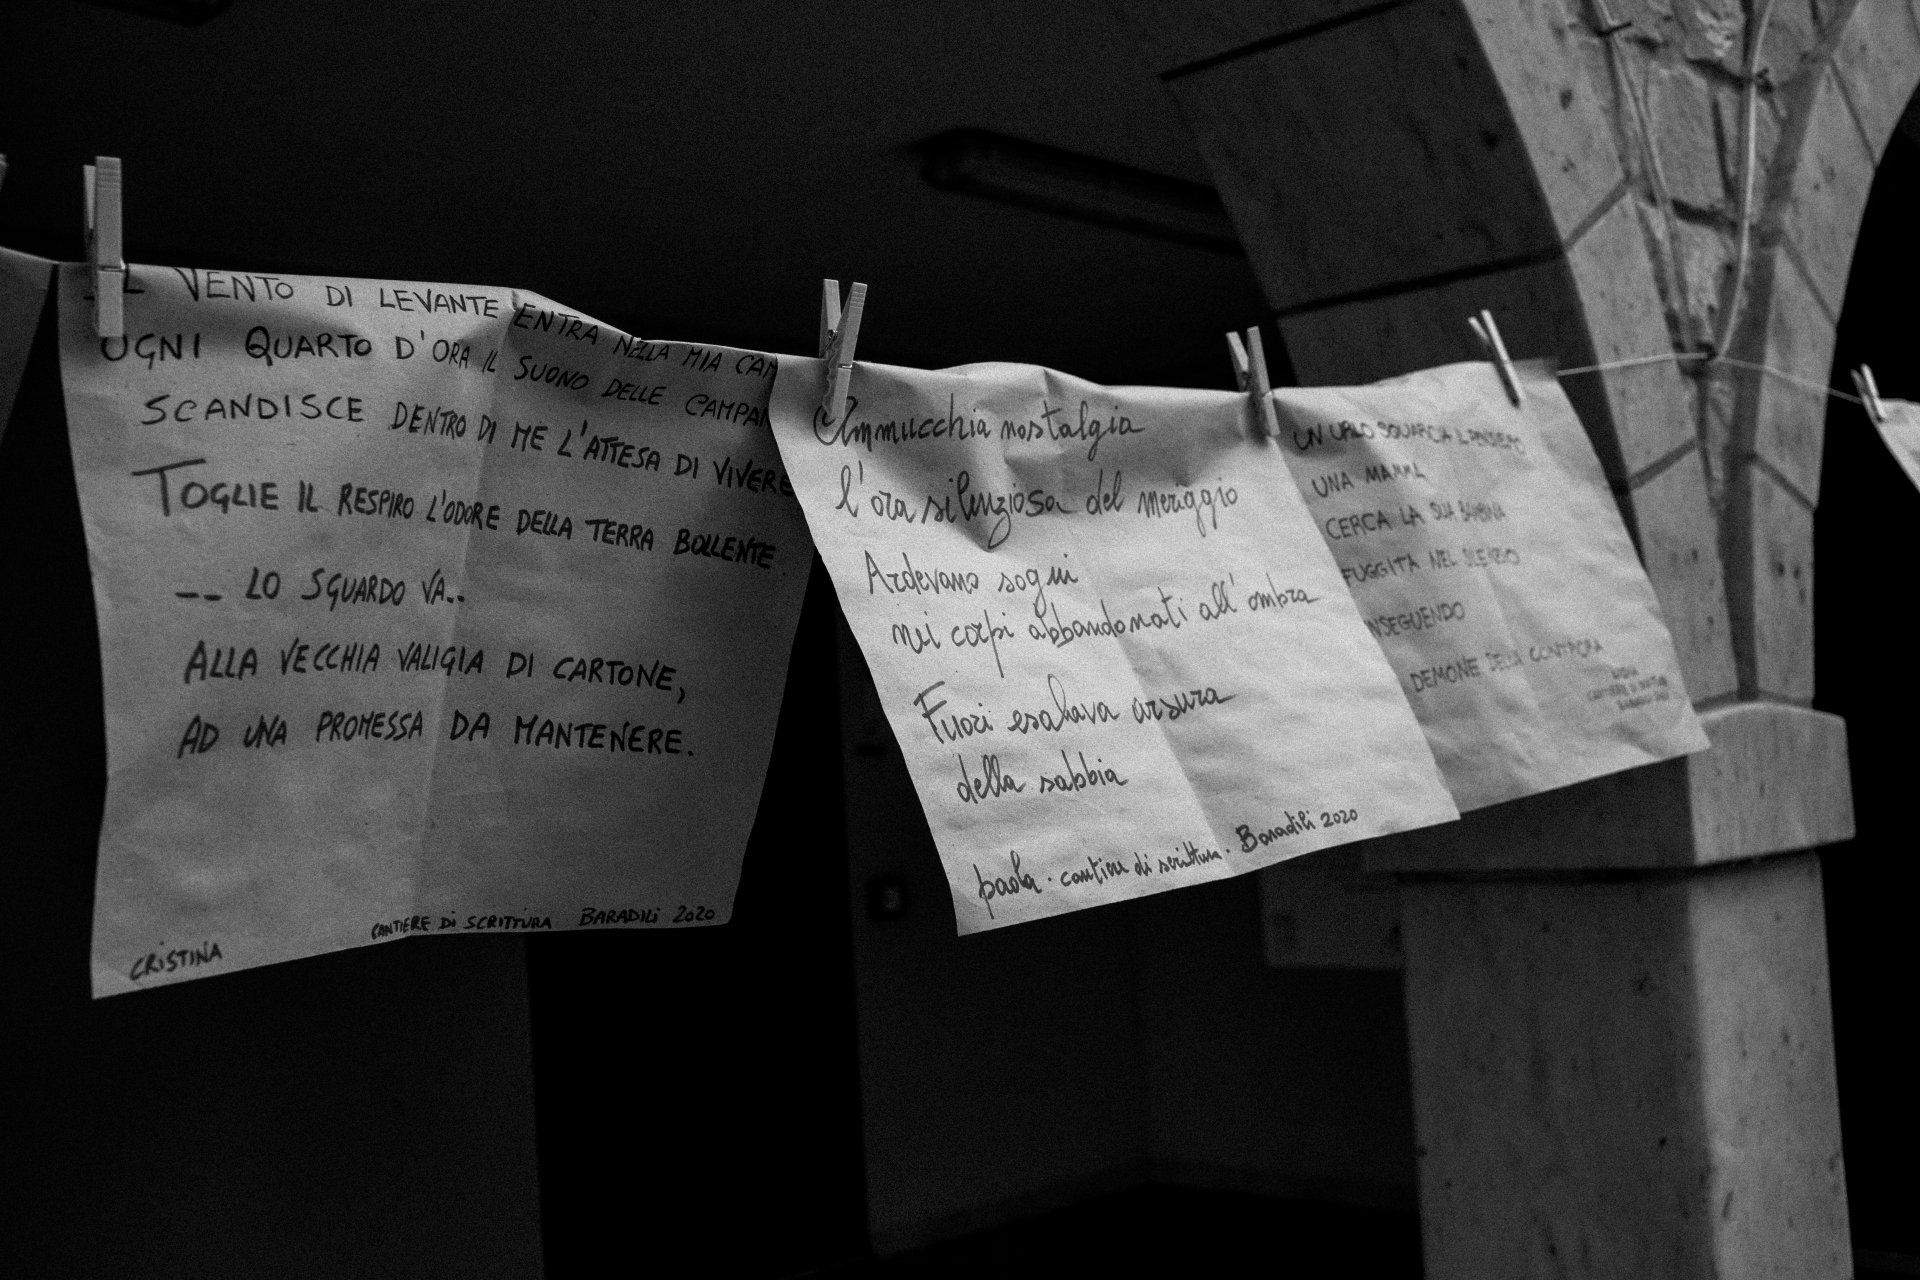 IL VENTO DI LEVANTE ENTRA NELLA MIA CAM
OGNI QUARTO D'ORA IL SUONO DELLE CAMPAN
SCANDISCE DENTRO DI ME L'ATTESA DI VIVERE
TOGLIE IL RESPIRO L'ODORE DELLA TERRA BOLLENTE.
-- LO SGUARDO VA..
ALLA VECCHIA VALIGIA DI CARTONE,
AD UNA PROMESSA DA MANTENERE.
CRISTINA
CANTIERE DI SCRITTURA BARADILI 2020
Ammucchia nostalgia
l'ora silenziosa del meriggio
Ardevano sogni
nei corpi abbandonati all'ombra
Fuori esalava arsura
della sabbia
paola · cantiere di scrittura · Baradili 2020
UN URLO SQUARCIA
UNA MAMMA
CERCA LA SUA BAMBINA
FUGGITA NEL SILENZIO
NSEGUENDO
DEMONE DELLA CONTRORA